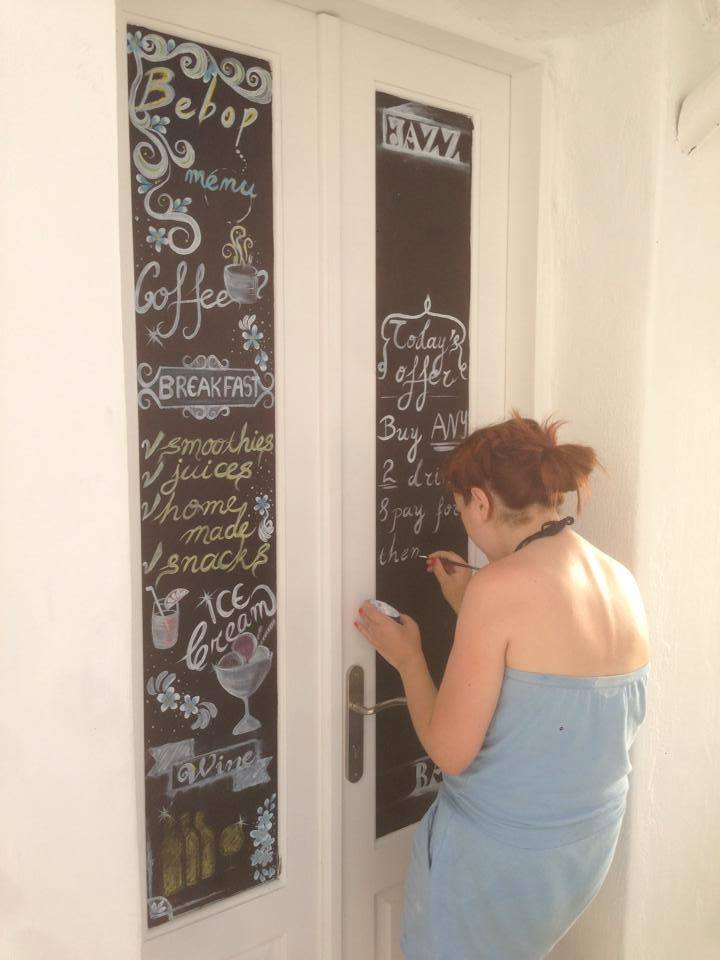 Bebop
ménu
Coffee
BREAKFAST
✓ smoothies
✓ juices
✓ home
made
✓ snacks
ICE
Cream
Wine
JAZZ
Today's
offer
Buy ANY
2
& pay for